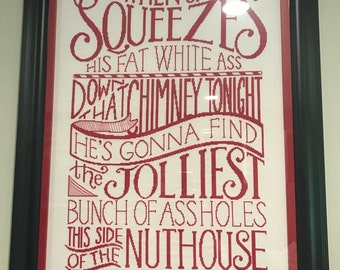 SQUEEZES
HIS FAT WHITE ASS
DOWN THAT CHIMNEY TONIGHT
HE'S GONNA FIND
the JOLLIEST
BUNCH OF ASSHOLES
THIS SIDE OF THE NUTHOUSE